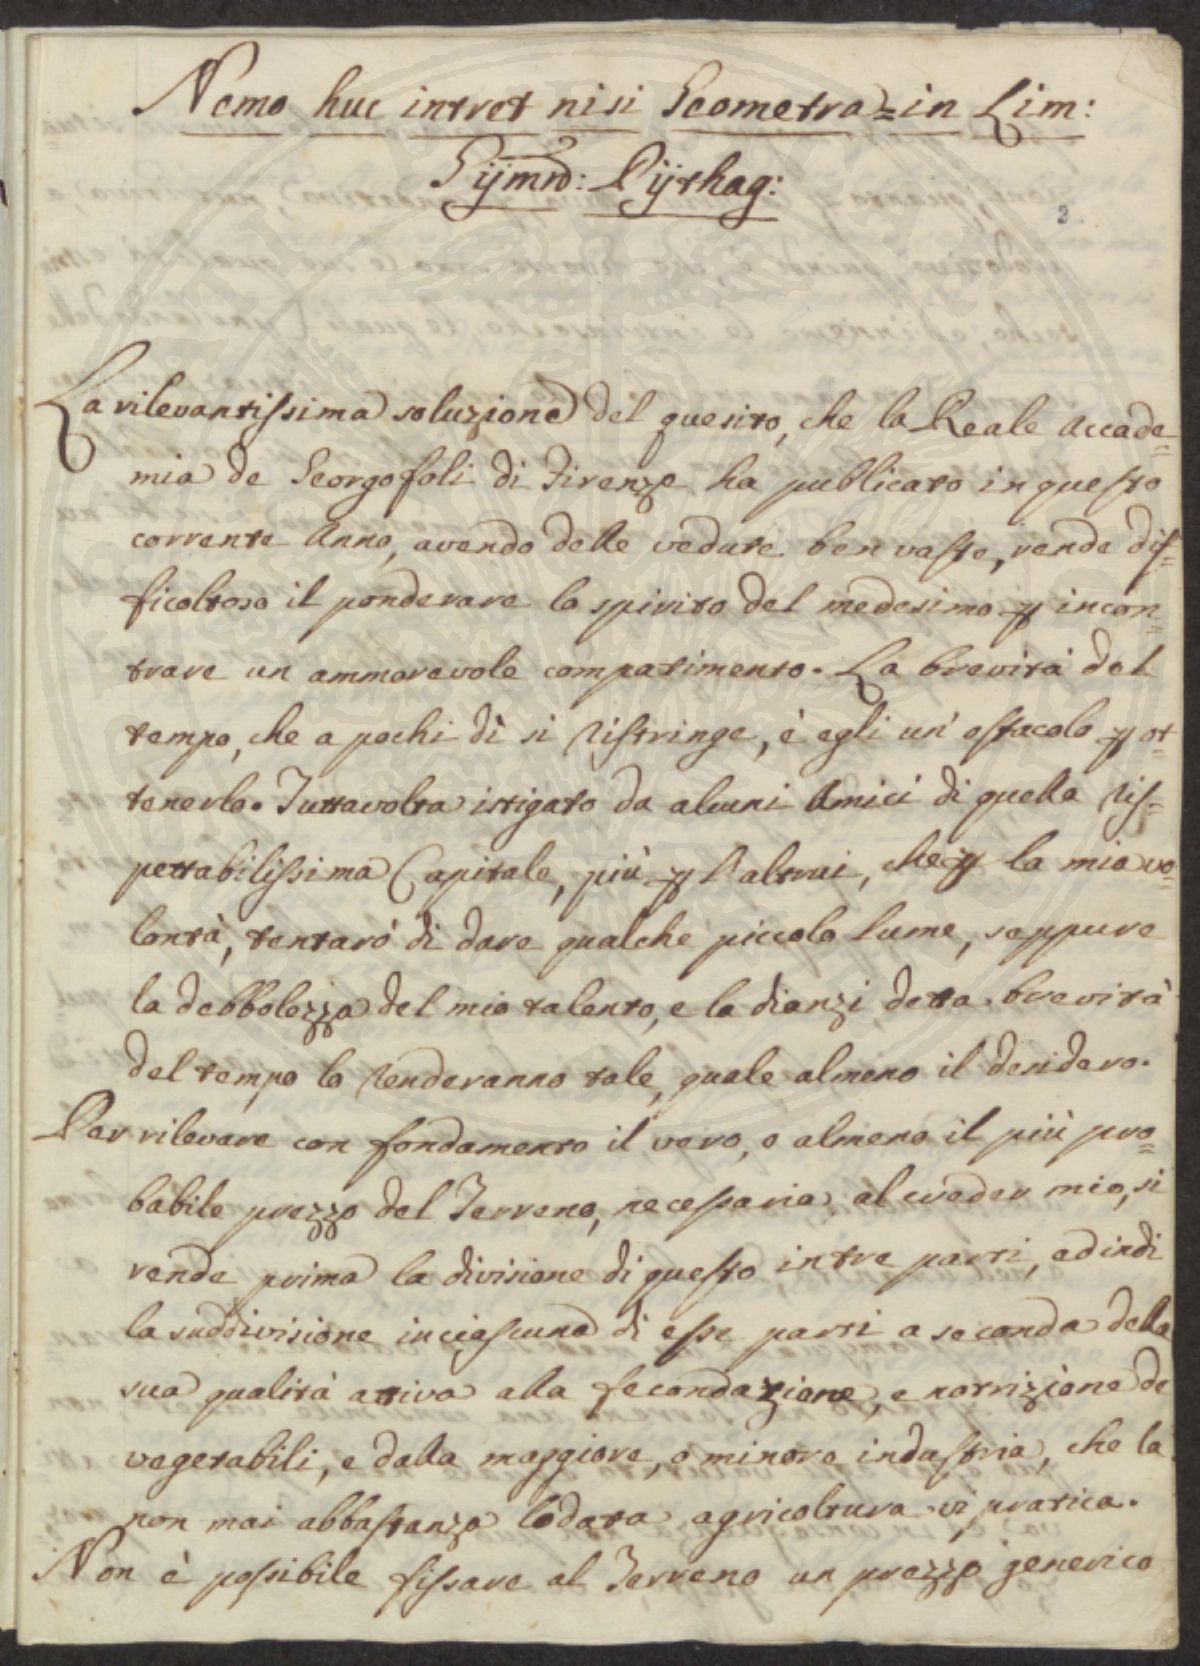 Nemo huc intret nisi Geometra = in Lim:
Gÿmn: Pÿthag:
2
La rilevantissima soluzione del quesito, che la Reale Accade=
mia de Georgofoli di Firenze ha publicato in questo
corrente Anno, avendo delle vedute ben vaste, rende dif=
ficoltoso il ponderare lo spirito del medesimo p incon=
trare un ammorevole compatimento. La brevità del
tempo, che a pochi dì si ristringe, è egli un' ostacolo p ot=
tenerlo. Tuttavolta istigato da alcuni Amici di quella ris=
pettabilissima Capitale, più p l'altrui, che p la mia vo=
lontà, tentarò di dare qualche piccolo lume, seppure
la debbolezza del mio talento, e la dianzi detta brevità
del tempo lo renderanno tale, quale almeno il desidero.
Per rilevare con fondamento il vero, o almeno il più pro=
babile prezzo del Terreno, necessaria, al creder mio, si
rende prima la divisione di questo in tre parti, ed indi
la suddivisione in ciascuna di esse parti a seconda della
sua qualità attiva alla fecondazione, e notrizione de
vegetabili, e dalla maggiore, o minore industria, che la
non mai abbastanza lodata agricoltura vi pratica.
Non è possibile fissare al Terreno un prezzo generico